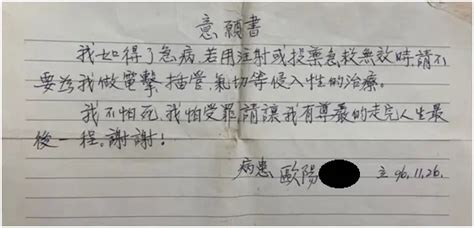 意願書
我如得了急病,若用注射或投藥急救無效時,請不
要為我做電擊、插管、氣切等侵入性的治療。
我不怕死,我怕受罪,請讓我有尊嚴的走完人生最
後一程。謝謝!
病患 歐陽 立 96.11.26.